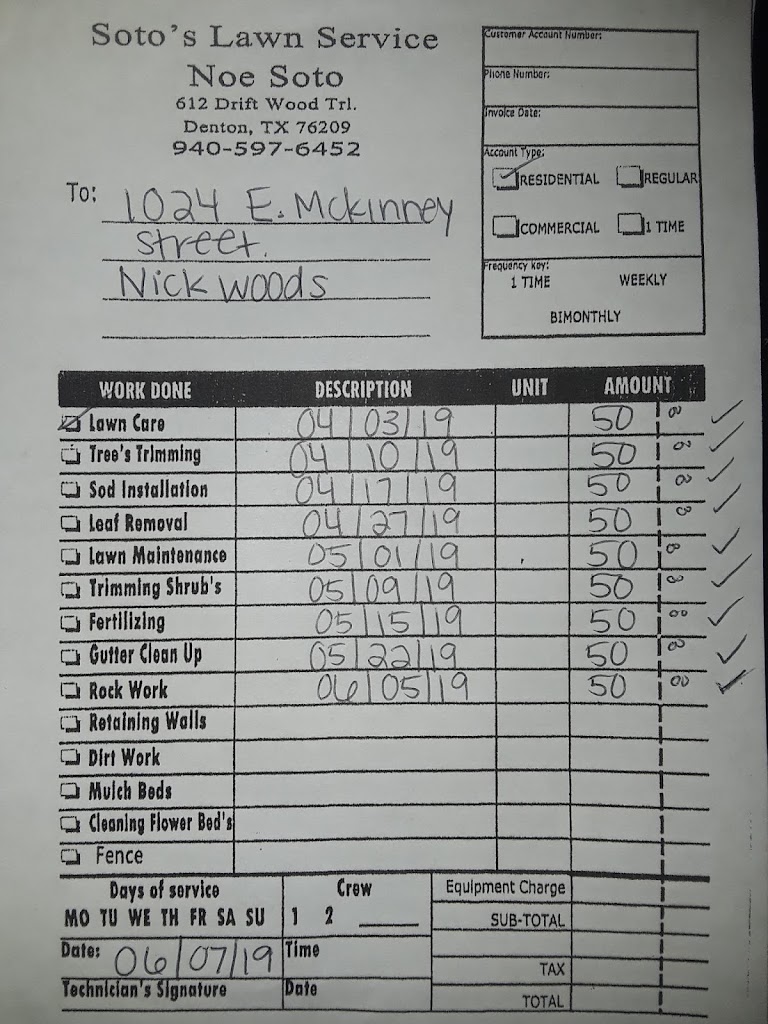 Soto's Lawn Service
Noe Soto
612 Drift Wood Trl.
Denton, TX 76209
940-597-6452
Customer Account Number:
Phone Number:
Invoice Date:
Account Type:
RESIDENTIAL REGULAR
COMMERCIAL 1 TIME
Frequency Key:
1 TIME WEEKLY
BIMONTHLY
To: 1024 E. Mckinney
street.
Nick woods
WORK DONE DESCRIPTION UNIT AMOUNT
Lawn Care 04/03/19 50 00
Tree's Trimming 04/10/19 50 00
Sod Installation 04/17/19 50 00
Leaf Removal 04/27/19 50 00
Lawn Maintenance 05/01/19 50 00
Trimming Shrub's 05/09/19 50 00
Fertilizing 05/15/19 50 00
Gutter Clean Up 05/22/19 50 00
Rock Work 06/05/19 50 00
Retaining Walls
Dirt Work
Mulch Beds
Cleaning Flower Bed's
Fence
Days of service Crew Equipment Charge
MO TU WE TH FR SA SU 1 2 SUB-TOTAL
Date: 06/07/19 Time TAX
Technician's Signature Date TOTAL